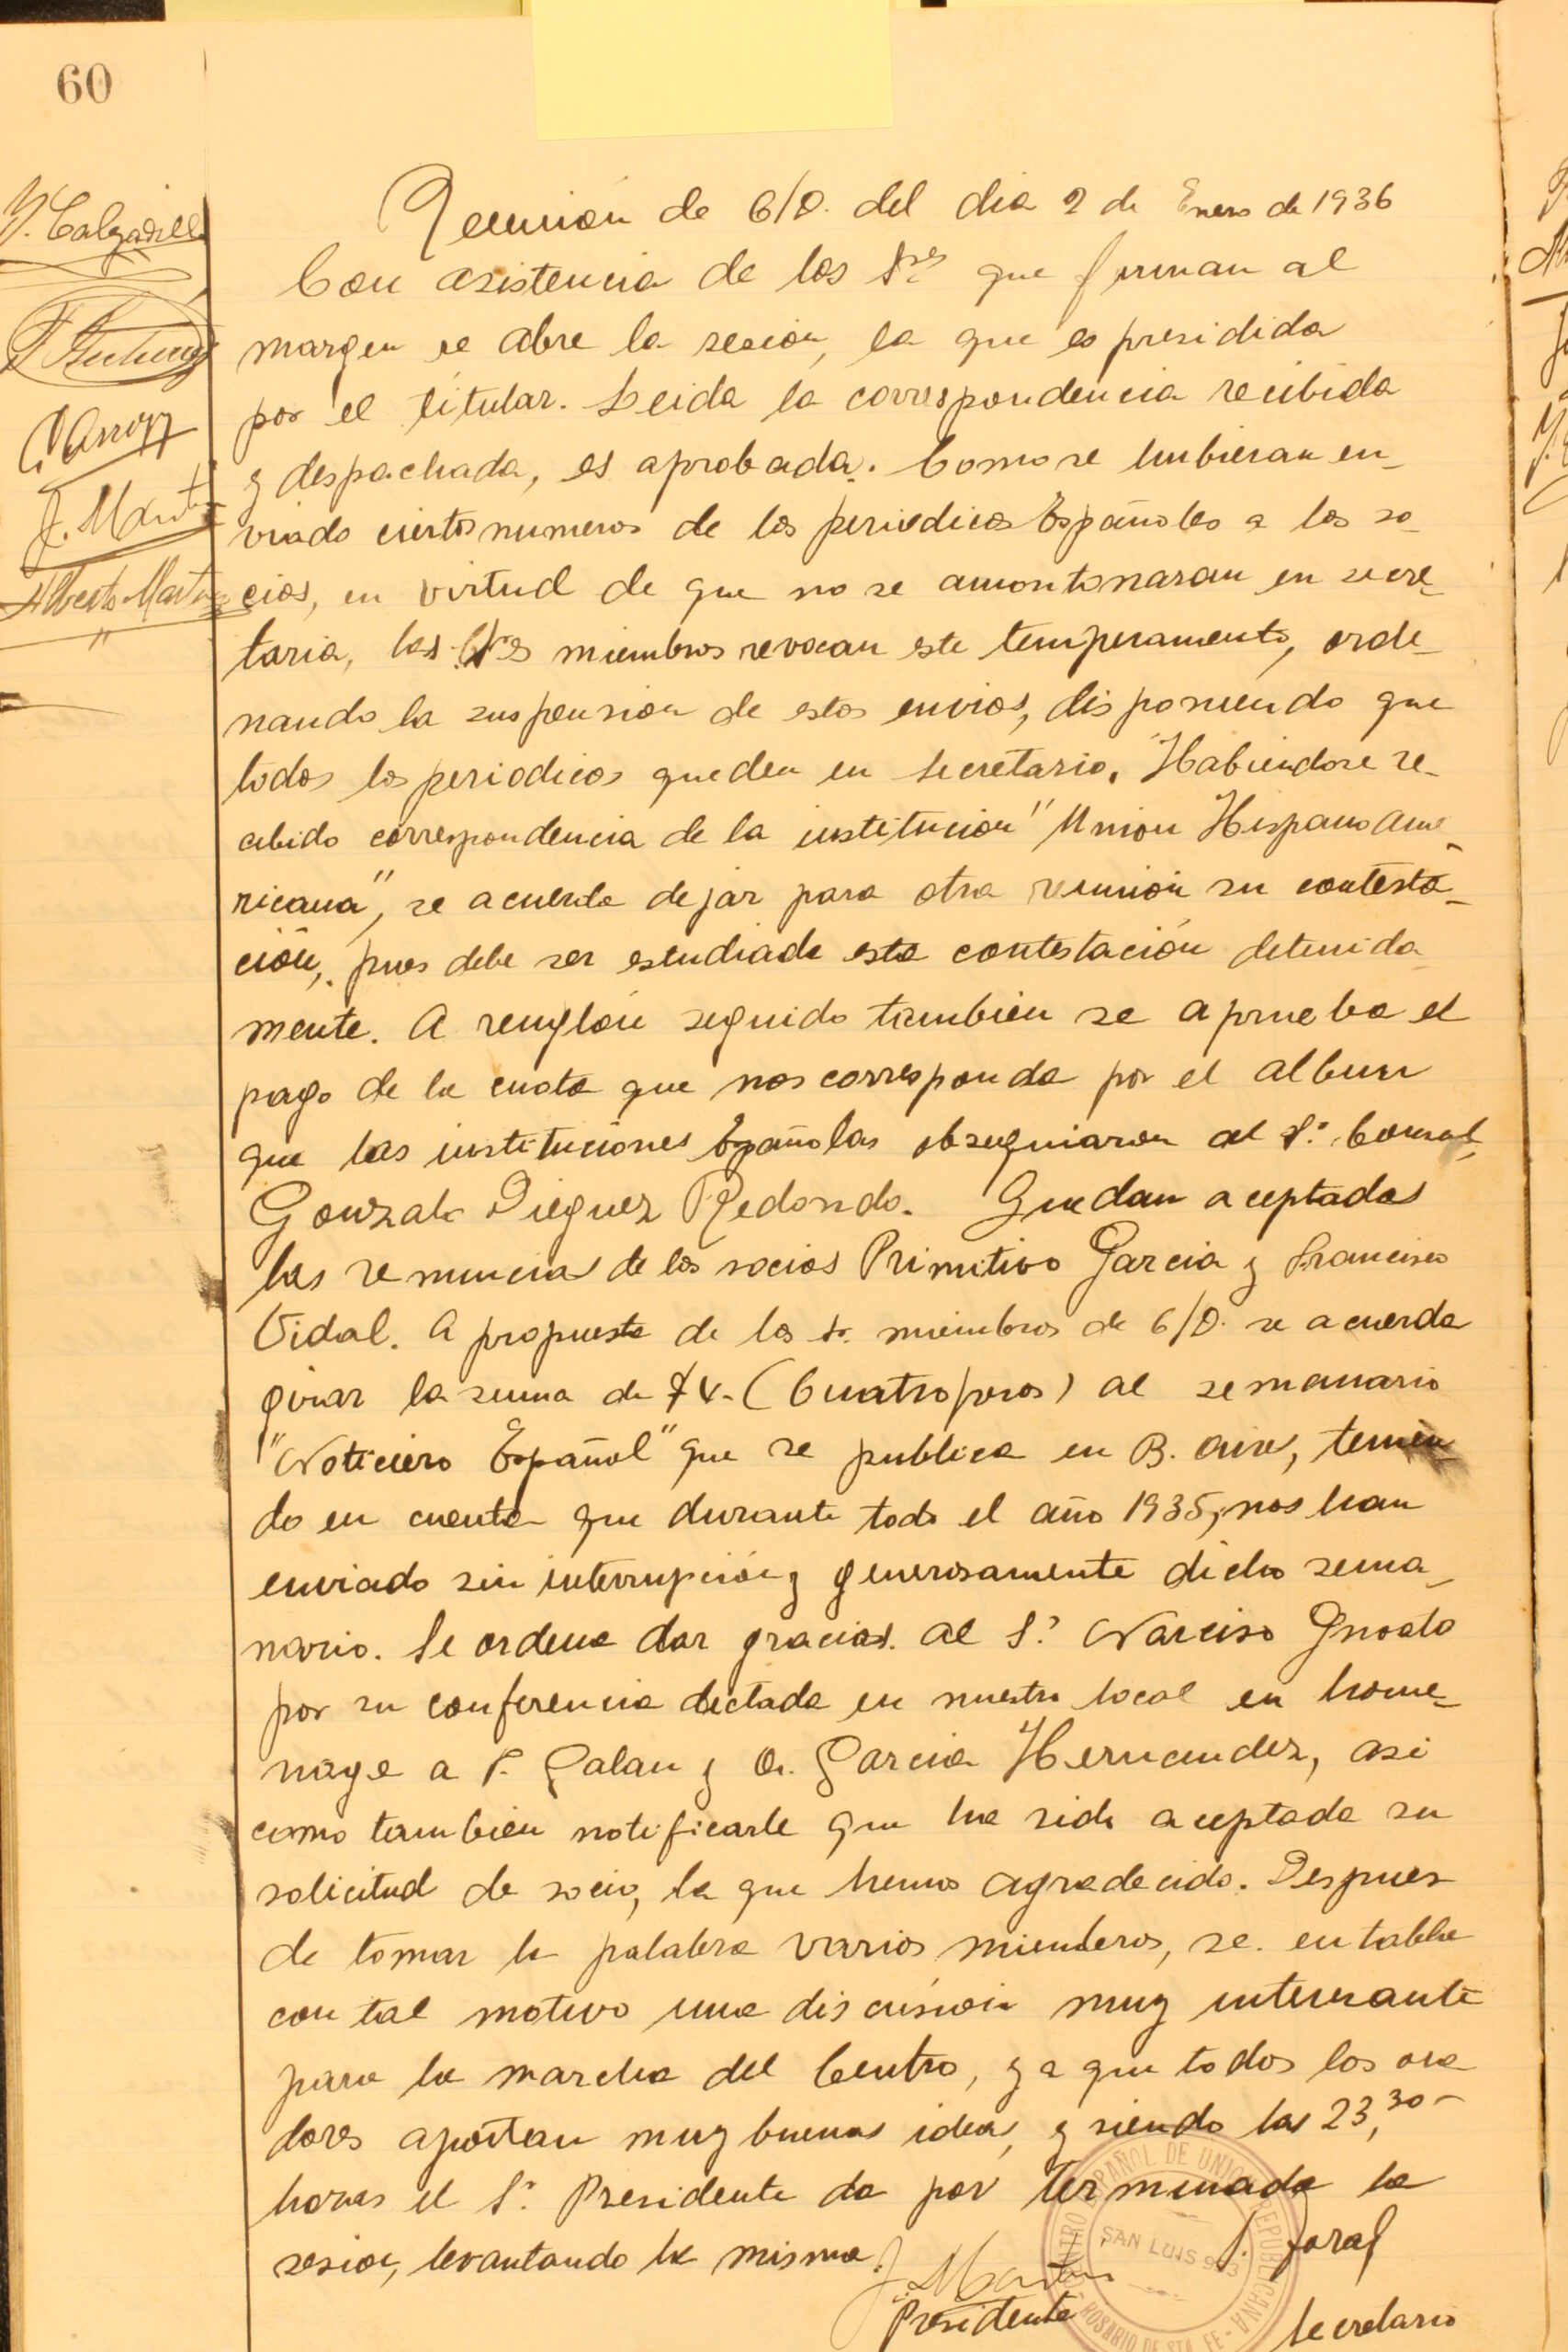 60
Y. Calzadilla
J. Marti
Alberto Martin
Reunión de C/D. del dia 2 de Enero de 1936
Con asistencia de los Sres que firman al
margen se abre la sesión, la que es presidida
por el titular. Leida la correspondencia recibida
y despachada, es aprobada. Como se hubieran en-
viado ciertos numeros de los periodicos Españoles a los so-
cios, en virtud de que no se amontonaran en secre-
taria, los Sres miembros revocan este temperamento, orde-
nando la suspension de estos envios, disponiendo que
todos los periodicos queden en secretaria. Habiendose re-
cibido correspondencia de la institucion "Union Hispano Ame-
ricana", se acuerda dejar para otra reunión su contesta-
ción, pues debe ser estudiada esta contestación detenida
mente. A renglón seguido tambien se aprueba el
pago de la cuota que nos corresponda por el album
que las instituciones Españolas obsequiaron al Sr. Consul
Gonzalo Dieguez Redondo. Quedan aceptadas
las renuncias de los socios Primitivo Garcia y Francisco
Vidal. A propuesta de los Sr. miembros de C/D. se acuerda
girar la suma de $ 4.- (Cuatro pesos) al semanario
"Noticiero Español" que se publica en B. Aires, tenien
do en cuenta que durante todo el año 1935, nos han
enviado sin interrupción y generosamente dicho sema-
nario. Se ordena dar gracias al Sr. Narciso Gnoato
por su conferencia dictada en nuestro local en home-
nage a F. Galan y A. Garcia Hernandez, asi
como tambien notificarle que ha sido aceptada su
solicitud de socio, la que hemos agradecido. Despues
de tomar la palabra varios miembros, se entabla
con tal motivo una discusión muy interesante
para la marcha del Centro, ya que todos los ora
dores aportan muy buenas ideas, y siendo las 23,30-
horas el Sr. Presidente da por terminada la
sesion, levantando la misma.
J. Marti
Presidente
Secretario
CENTRO ESPAÑOL DE UNION REPUBLICANA
SAN LUIS 953
ROSARIO DE STA. FE